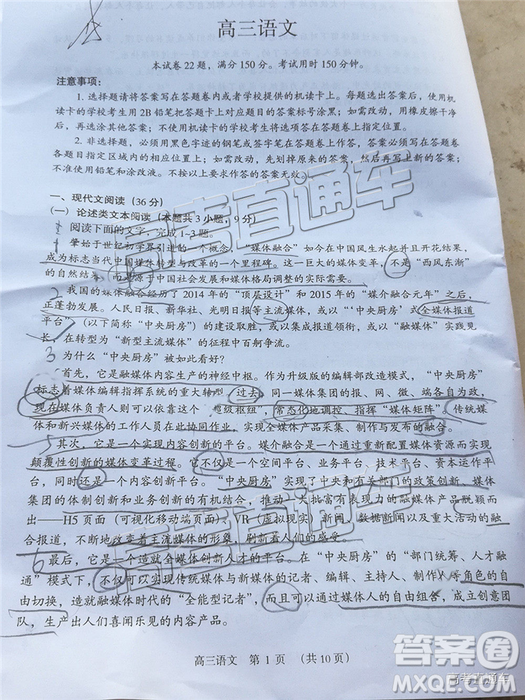 高三语文
本试卷22题，满分150分。考试用时150分钟。
注意事项：
1. 选择题请将答案写在答题卷内或者学校提供的机读卡上。每题选出答案后，使用机
读卡的学校考生用2B铅笔把答题卡上对应题目的答案标号涂黑；如需改动，用橡皮擦干净
后，再选涂其他答案；不使用机读卡的学校考生将答案写在答题卷上指定位置。
2. 非选择题，必须用黑色字迹的钢笔或签字笔在答题卷上作答，答案必须写在答题卷
各题目指定区域内的相应位置上；如需改动，先划掉原来的答案，然后再写上新的答案；
不准使用铅笔和涂改液。不按以上要求作答的答案无效。
一、现代文阅读（36分）
（一）论述类文本阅读（本题共3小题，9分）
阅读下面的文字，完成1~3题。
肇始于世纪学界引进的一个概念，“媒体融合”如今在中国风生水起并且开花结果，
成为标志当代中国媒体转型与改革的一个里程碑。这一巨大的媒体变革，不是“西风东渐”
的自然结果，而是源于中国社会发展和媒体格局调整的实际需要。
2 我国的媒体融合经历了2014年的“顶层设计”和2015年的“媒介融合元年”之后，
正蓬勃发展。人民日报、新华社、光明日报等主流媒体，或以“‘中央厨房’式全媒体报道
平台”（以下简称“中央厨房”）的建设取胜，或以集成报道领衔，或以“融媒体”实践见
长，在转型为“新型主流媒体”的征程中百舸争流。
3 为什么“中央厨房”被如此看好？
首先，它是融媒体内容生产的神经中枢。作为升级版的编辑部改造模式，“中央厨房”
标志着媒体编辑指挥系统的重大转型。过去，同一媒体集团的报、网、微、端各自为政，
现在媒体负责人则可以依靠这个“超级枢纽”，常态化地调控、指挥“媒体矩阵”，传统媒
体和新兴媒体的工作人员在此协同作业，实现全媒体产品采集、制作与发布的融合。
5 其次，它是一个实现内容创新的平台。媒介融合是一个通过重新配置媒体资源而实现
颠覆性创新的媒体变革过程。它不仅是一个空间平台、业务平台、技术平台、资本运作平
台，同时还是一个内容创新平台。“中央厨房”实现了中央和有关部门的政策创新、媒体
集团的体制创新和业务创新的有机结合，推动一大批富有表现力的融媒体产品脱颖而
出——H5页面（可视化移动端页面）、VR（虚拟现实）新闻、数据新闻以及重大活动的融
合报道，不断地改变着主流媒体的形象，刷新着人们的感受。
6 最后，它是一个造就全媒体创新人才的平台。在“中央厨房”的“部门统筹、人才融
通”模式下，不仅可以实现传统媒体与新媒体的记者、编辑、主持人、制作人等角色的自
由切换，造就融媒体时代的“全能型记者”，而且可以通过媒体人的自由组合，成立创意团
队，生产出人们喜闻乐见的内容产品。
高三语文 第1页 （共10页）
直通车
MXQE.COM